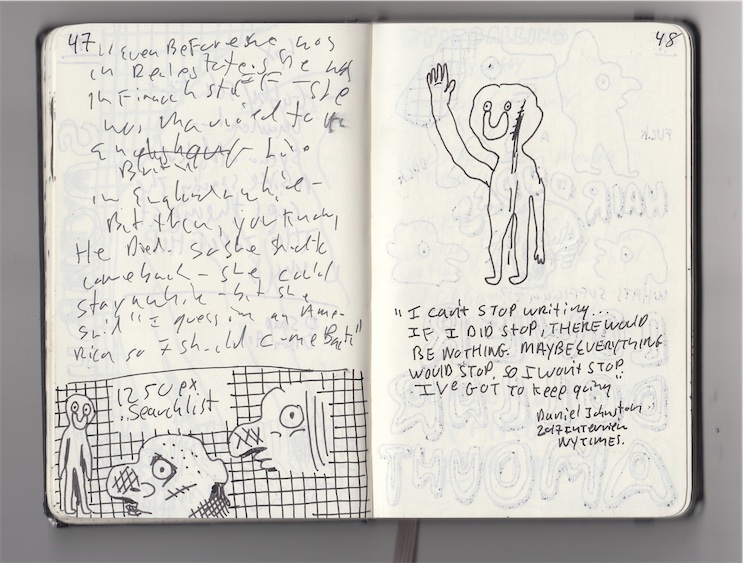 47
"Even Before she was
in Real estate, she was
in Finance stuff - she
was married to a
live
British
in England awhile -
But then, you know,
He Died, so she had to
come back - she could
stay awhile - but she
said "I guess im an Ame-
rican so I should come Back"
1250px
Searchlist
48
"I can't STOP writing...
IF I DID STOP, THERE WOULD
BE NOTHING. MAYBE EVERYTHING
WOULD STOP. SO I WON'T STOP.
I'VE GOT TO keep going"
Daniel Johnston
2017 Interview
NYTIMES.